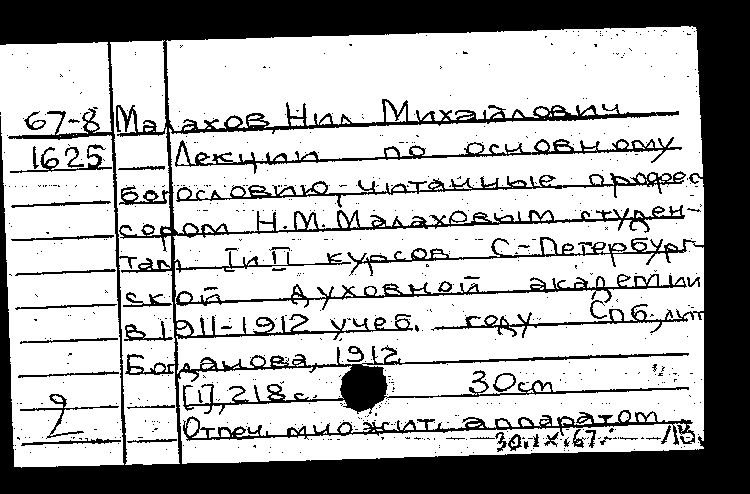 67-8 Малахов, Нил Михайлович
1625 Лекции по основному
богословию, читанные профес
сором Н.М. Малаховым студен-
там I и II курсов С.-Петербург-
ской духовной академии
в 1911-1912 учеб. году. Спб, лит
Богданова, 1912
[1], 218 с. 30см
2 Отпеч. множит. аппаратом.
30.IX.67.